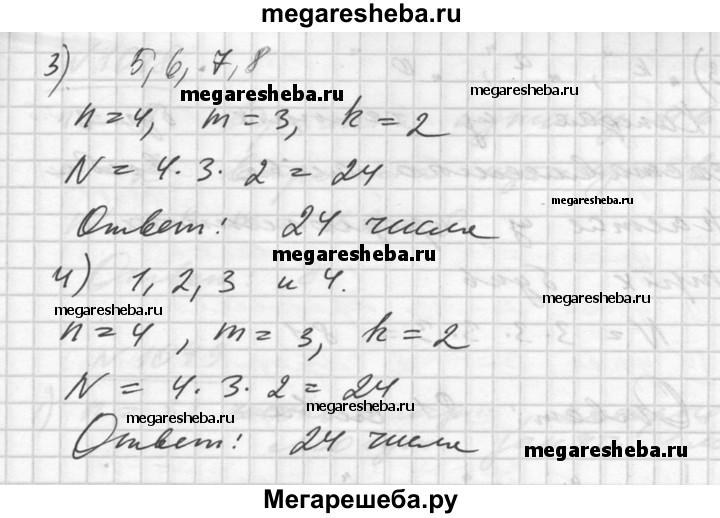 megaresheba.ru
3) 5, 6, 7, 8
megaresheba.ru megaresheba.ru
n = 4, m = 3, k = 2
N = 4 · 3 · 2 = 24
megaresheba.ru
Ответ: 24 числа
megaresheba.ru
4) 1, 2, 3 и 4.
megaresheba.ru megaresheba.ru
n = 4, m = 3, k = 2
N = 4 · 3 · 2 = 24
megaresheba.ru megaresheba.ru
Ответ: 24 числа
megaresheba.ru
Мегарешеба.ру